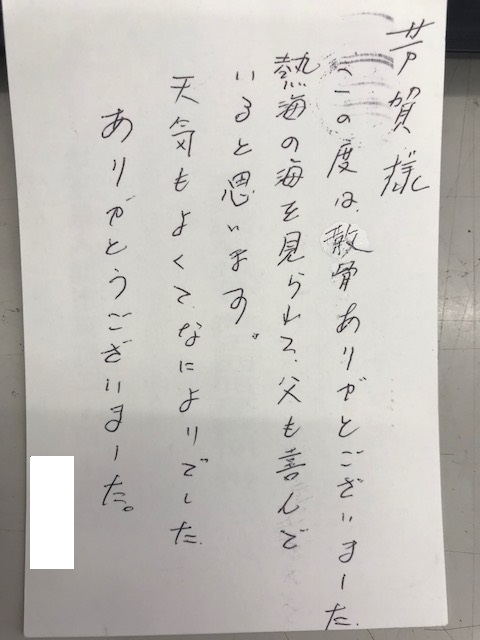 芳賀様
この度は、散骨ありがとございました
熱海の海を見られて、父も喜んで
いると思います。
天気もよくて、なによりでした
ありがとうございました。